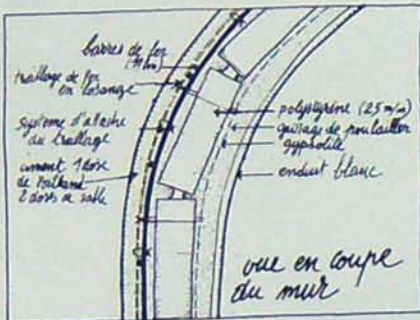 barres de fer
(10 mm)
treillage de fer
en losange
système d'attache
du treillage
ciment 1 dose
de Portland
2 doses de sable
polystyrène (2,5 m/m)
grillage de poulailler
gypsolite
enduit blanc
vue en coupe
du mur